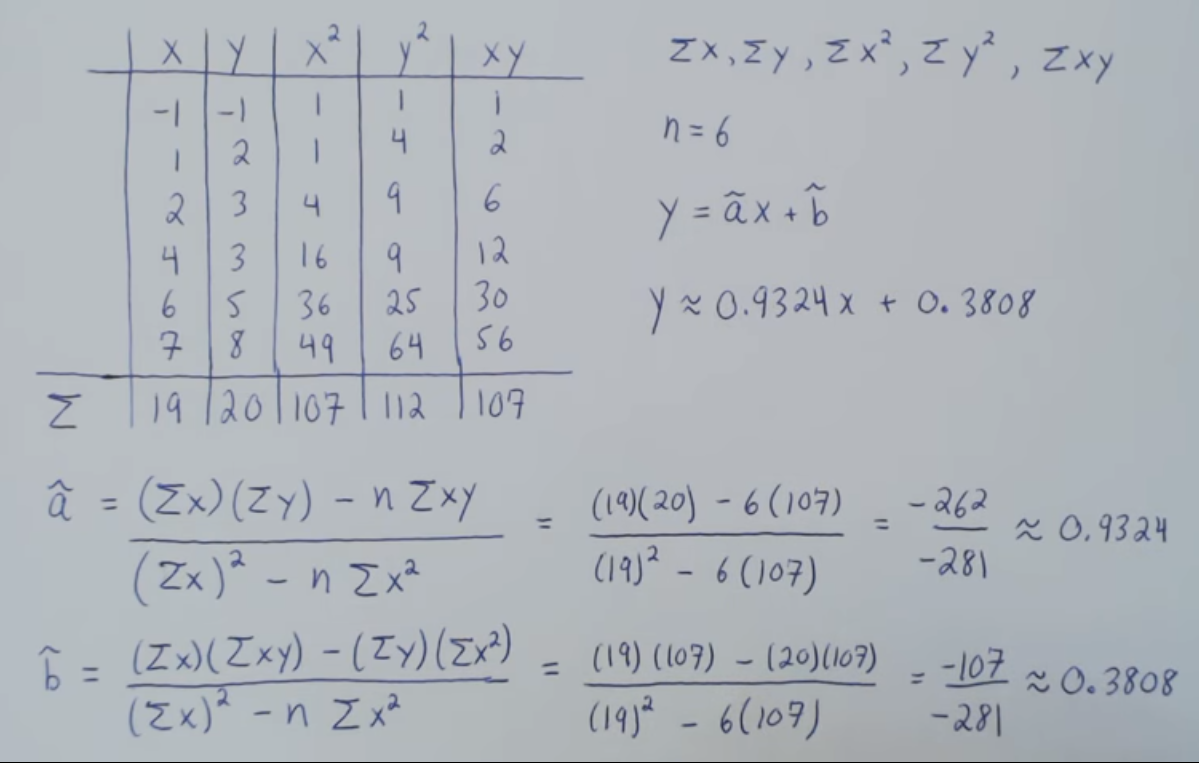 x y x² y² xy
-1 -1 1 1 1
1 2 1 4 2
2 3 4 9 6
4 3 16 9 12
6 5 36 25 30
7 8 49 64 56
Σ 19 20 107 112 107
Σx, Σy, Σx², Σy², Σxy
n = 6
y = ãx + b̃
y ≈ 0.9324x + 0.3808
â = (Σx)(Σy) - n Σxy / (Σx)² - n Σx² = (19)(20) - 6(107) / (19)² - 6(107) = -262 / -281 ≈ 0.9324
b̂ = (Σx)(Σxy) - (Σy)(Σx²) / (Σx)² - n Σx² = (19)(107) - (20)(107) / (19)² - 6(107) = -107 / -281 ≈ 0.3808